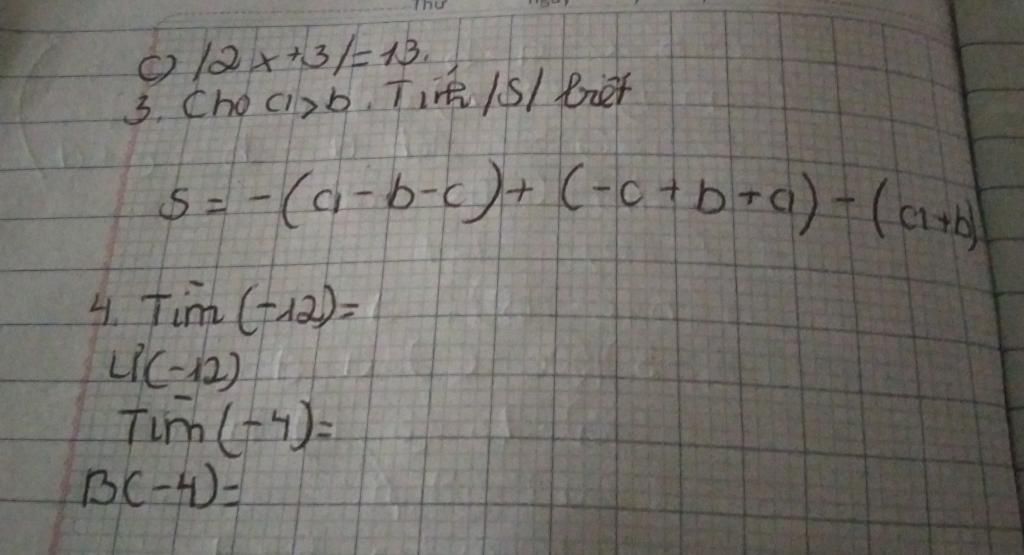 Thứ Ngày
c) |2x+3|=13.
3. Cho a>b. Tính |S| biết
S = -(a-b-c)+(-c+b+a)-(a+b)
4. Tìm (-12)=
Ư(-12)
Tìm (-4)=
B(-4)=